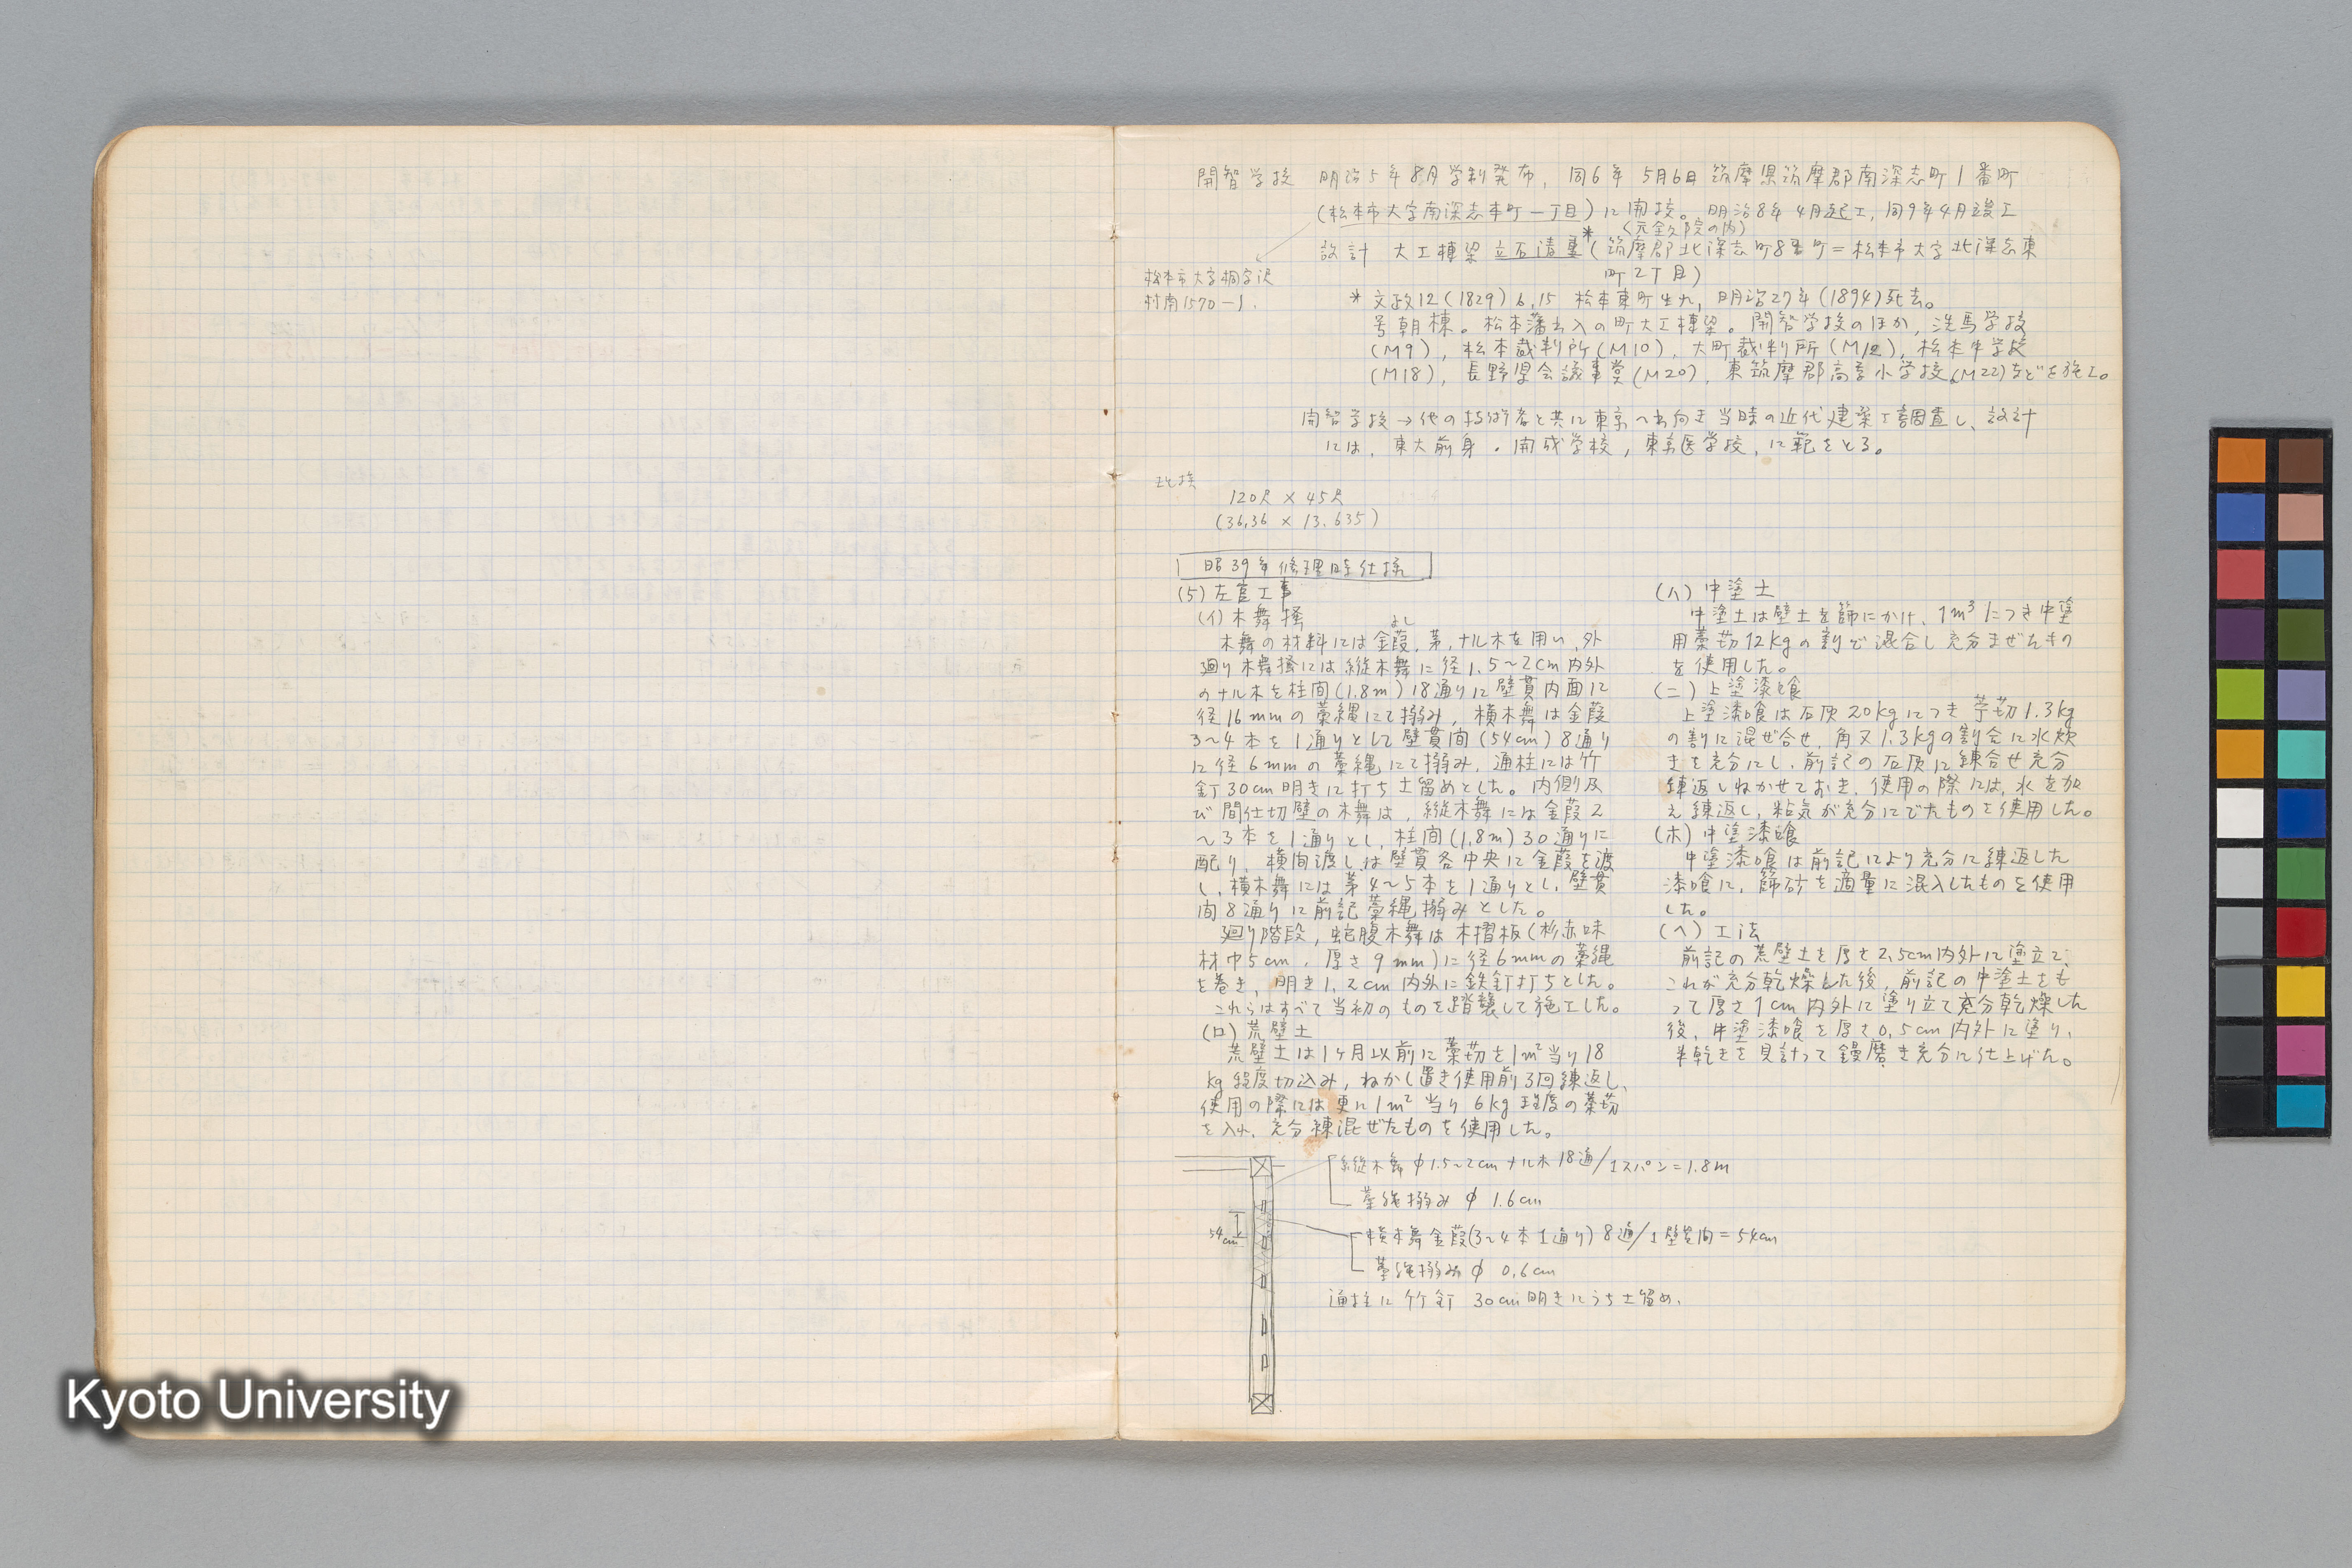 開智学校 明治5年8月学制発布, 同6年 5月6日 筑摩県筑摩郡南深志町1番町
(松本市大字南深志本町一丁目)に開校。明治8年4月起工, 同9年4月竣工
(元全久院の内)
設計 大工棟梁 立石清重*(筑摩郡北深志町8番町=松本市大字北深志東
町2丁目)
松本市大字桐字沢
村南1570-1.
* 文政12(1829) 6.15 松本東町生れ, 明治27年(1894)死去。
号朝棟。松本藩出入の町大工棟梁。開智学校のほか, 洗馬学校
(M9), 松本裁判所(M10), 大町裁判所(M12), 松本中学校
(M18), 長野県会議事堂(M20), 東筑摩郡高等小学校(M22)などを施工。
開智学校→他の技術者と共に東京へ出向き当時の近代建築を調査し、設計
には, 東大前身・開成学校, 東京医学校, に範をとる。
120尺 × 45尺
(36.36 × 13.635)
昭39年修理時仕様
(5)左官工事
(イ)木舞掻
よし
木舞の材料には金葭, 茅, ナル木を用い, 外
廻り木舞掻には縦木舞に径1.5~2cm内外
のナル木を柱間(1.8m)18通りに壁貫内面に
径16mmの藁縄にて搦み, 横木舞は金葭
3~4本を1通りとして壁貫間(54cm)8通り
に径6mmの藁縄にて搦み, 通柱には竹
釘30cm明きに打ち土留めとした。内側及
び間仕切壁の木舞は, 縦木舞には金葭2
~3本を1通りとし, 柱間(1.8m)30通りに
配り, 横間渡しは壁貫各中央に金葭を渡
し, 横木舞には茅4~5本を1通りとし, 壁貫
間8通りに前記藁縄搦みとした。
廻り階段, 蛇腹木舞は木摺板(杉赤味
材巾5cm, 厚さ9mm)に径6mmの藁縄
を巻き, 明き1.2cm内外に鉄釘打ちとした。
これらはすべて当初のものを踏襲して施工した。
(ロ)荒壁土
荒壁土は1ヶ月以前に藁苆を1m²当り18
kg程度切込み, ねかし置き使用前3回練返し,
使用の際には更に1m²当り6kg程度の藁苆
を入れ, 充分練混ぜたものを使用した。
(ハ)中塗土
中塗土は壁土を篩にかけ, 1m³につき中塗
用藁苆12kgの割で混合し充分まぜたもの
を使用した。
(ニ)上塗漆喰
上塗漆喰は石灰20kgにつき苧苆1.3kg
の割に混ぜ合せ, 角又1.3kgの割合に水炊
きを充分にし, 前記の石灰に練合せ充分
練返しねかせておき, 使用の際には, 水を加
え練返し, 粘気が充分にでたものを使用した。
(ホ)中塗漆喰
中塗漆喰は前記により充分に練返した
漆喰に, 篩砂を適量に混入したものを使用
した。
(ヘ)工法
前記の荒壁土を厚さ2.5cm内外に塗立て,
これが充分乾燥した後, 前記の中塗土をも
って厚さ1cm内外に塗り立て充分乾燥した
後, 中塗漆喰を厚さ0.5cm内外に塗り,
半乾きを見計って鏝磨き充分に仕上げた。
縦木舞 φ1.5~2cm ナル木 18通/1スパン=1.8m
藁縄搦み φ 1.6cm
54cm
横木舞金葭(3~4本1通り) 8通/1壁貫間=54cm
藁縄搦み φ 0.6cm
通柱に竹釘 30cm明きにうち土留め.
Kyoto University